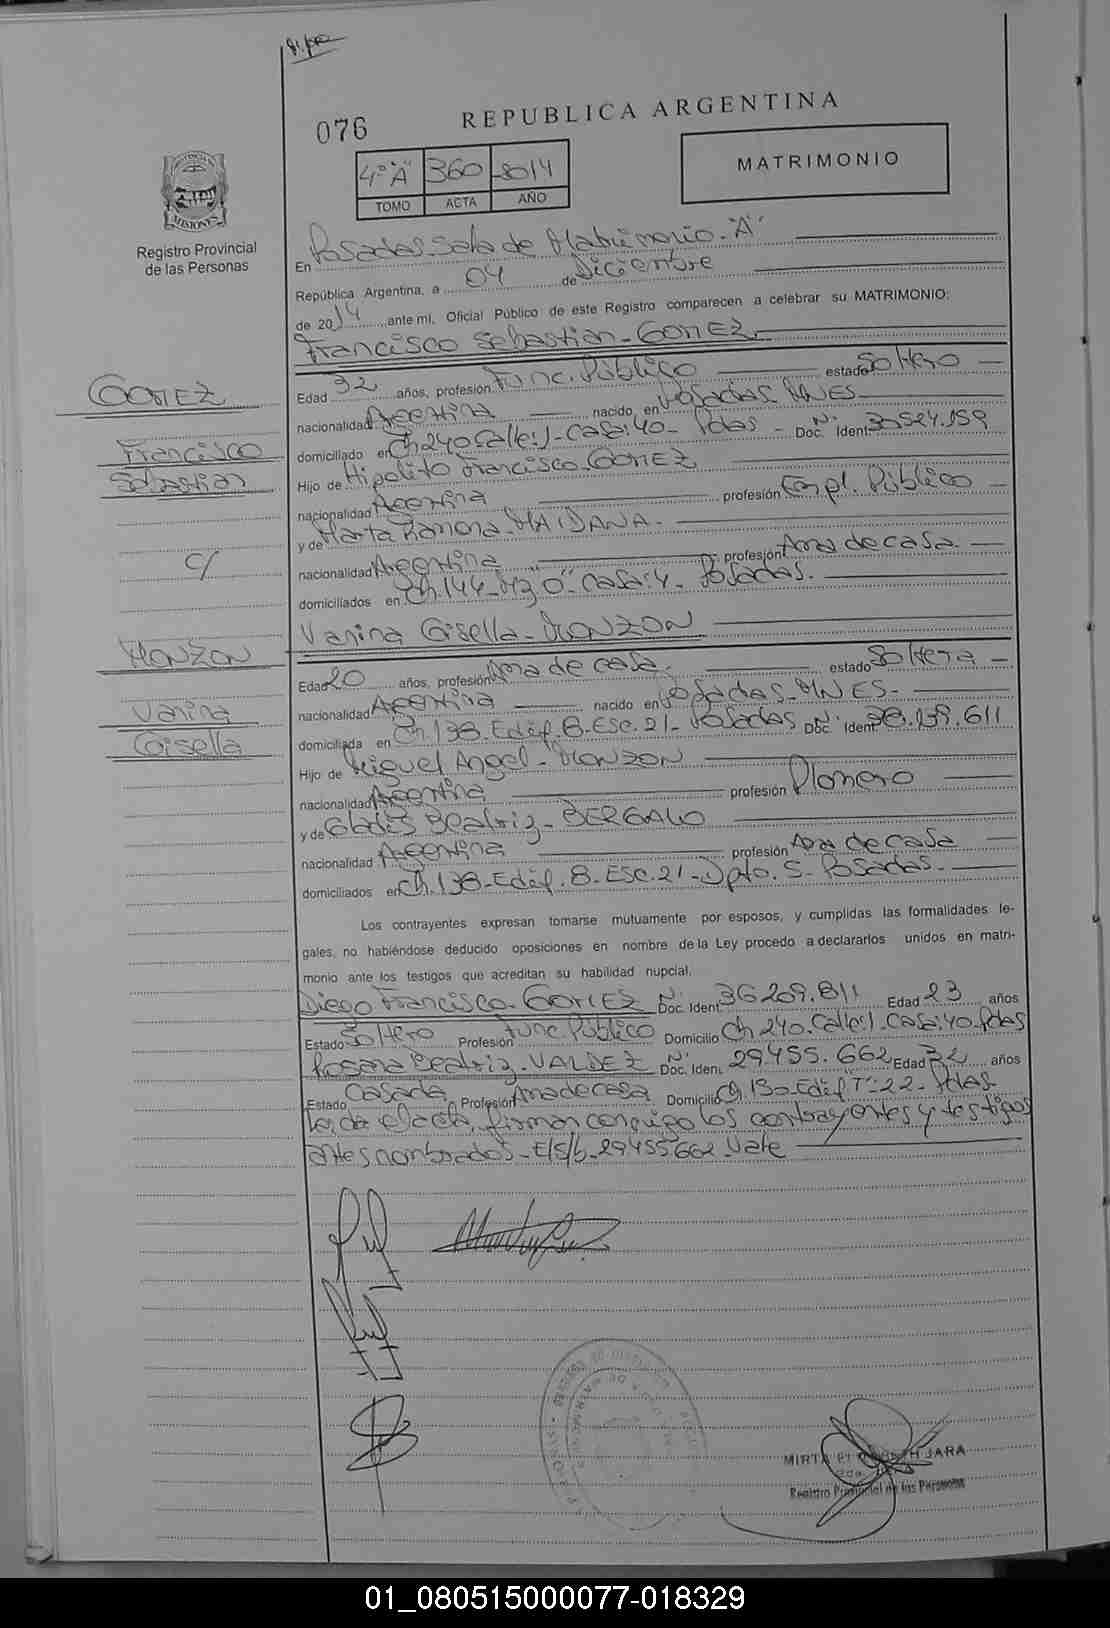 076
REPUBLICA ARGENTINA
4º "A" 360 2014
TOMO ACTA AÑO
MATRIMONIO
MISIONES
Registro Provincial
de las Personas
En Posadas-Sala de Matrimonio-"A"
República Argentina, a 04 de Diciembre
de 2014 ante mí, Oficial Público de este Registro comparecen a celebrar su MATRIMONIO:
Francisco Sebastian-GOMEZ
Edad 32 años, profesión Func. Público estado Soltero
nacionalidad Argentina nacido en Posadas MNES
domiciliado en Ch. 240 Calle: J-Casa: 40- Pdas - Doc. Ident.
Hijo de Hipolito Francisco GOMEZ
nacionalidad Argentina profesión Empl. Público
y de Marta Ramona MAIDANA.
nacionalidad Argentina profesión Ama de casa
domiciliados en Ch. 144-Mz "O" Casa: 4- Posadas.
Vanina Gisella-MONZON
Edad 20 años, profesión Ama de casa. estado Soltera
nacionalidad Argentina nacido en Posadas-MNES-
domiciliada en Ch. 138-Edif. 8-Esc. 21- Posadas Nº Doc. Ident. 38.139.611
Hijo de Miguel Angel-MONZON
nacionalidad Argentina profesión Plomero
y de Gladis Beatriz-
nacionalidad Argentina profesión Ama de casa
domiciliados en Ch. 138-Edif. 8-Esc. 21-Dpto. 5-Posadas-
Los contrayentes expresan tomarse mutuamente por esposos, y cumplidas las formalidades le-
gales, no habiéndose deducido oposiciones en nombre de la Ley procedo a declararlos unidos en matri-
monio ante los testigos que acreditan su habilidad nupcial.
Diego Francisco-GOMEZ Nº Doc. Ident. 36.209.811 Edad 23 años
Estado Soltero Profesión Func. Público Domicilio Ch 240. Calle: J-Casa: 40-Pdas
Rosana Beatriz-VALDEZ Nº Doc. Iden. 29.455.662 Edad 32 años
Estado Casada Profesión Ama de casa Domicilio Ch. Edif 22- Pdas.
Leída el acta, firman conmigo los contrayentes y testigos
antes nombrados-E/S/b-29.455.662-Vale
GOMEZ
Francisco
Sebastian
C/
MONZON
Vanina
Gisella
MIRTA JARA
Registro Provincial de las Personas
01_080515000077-018329